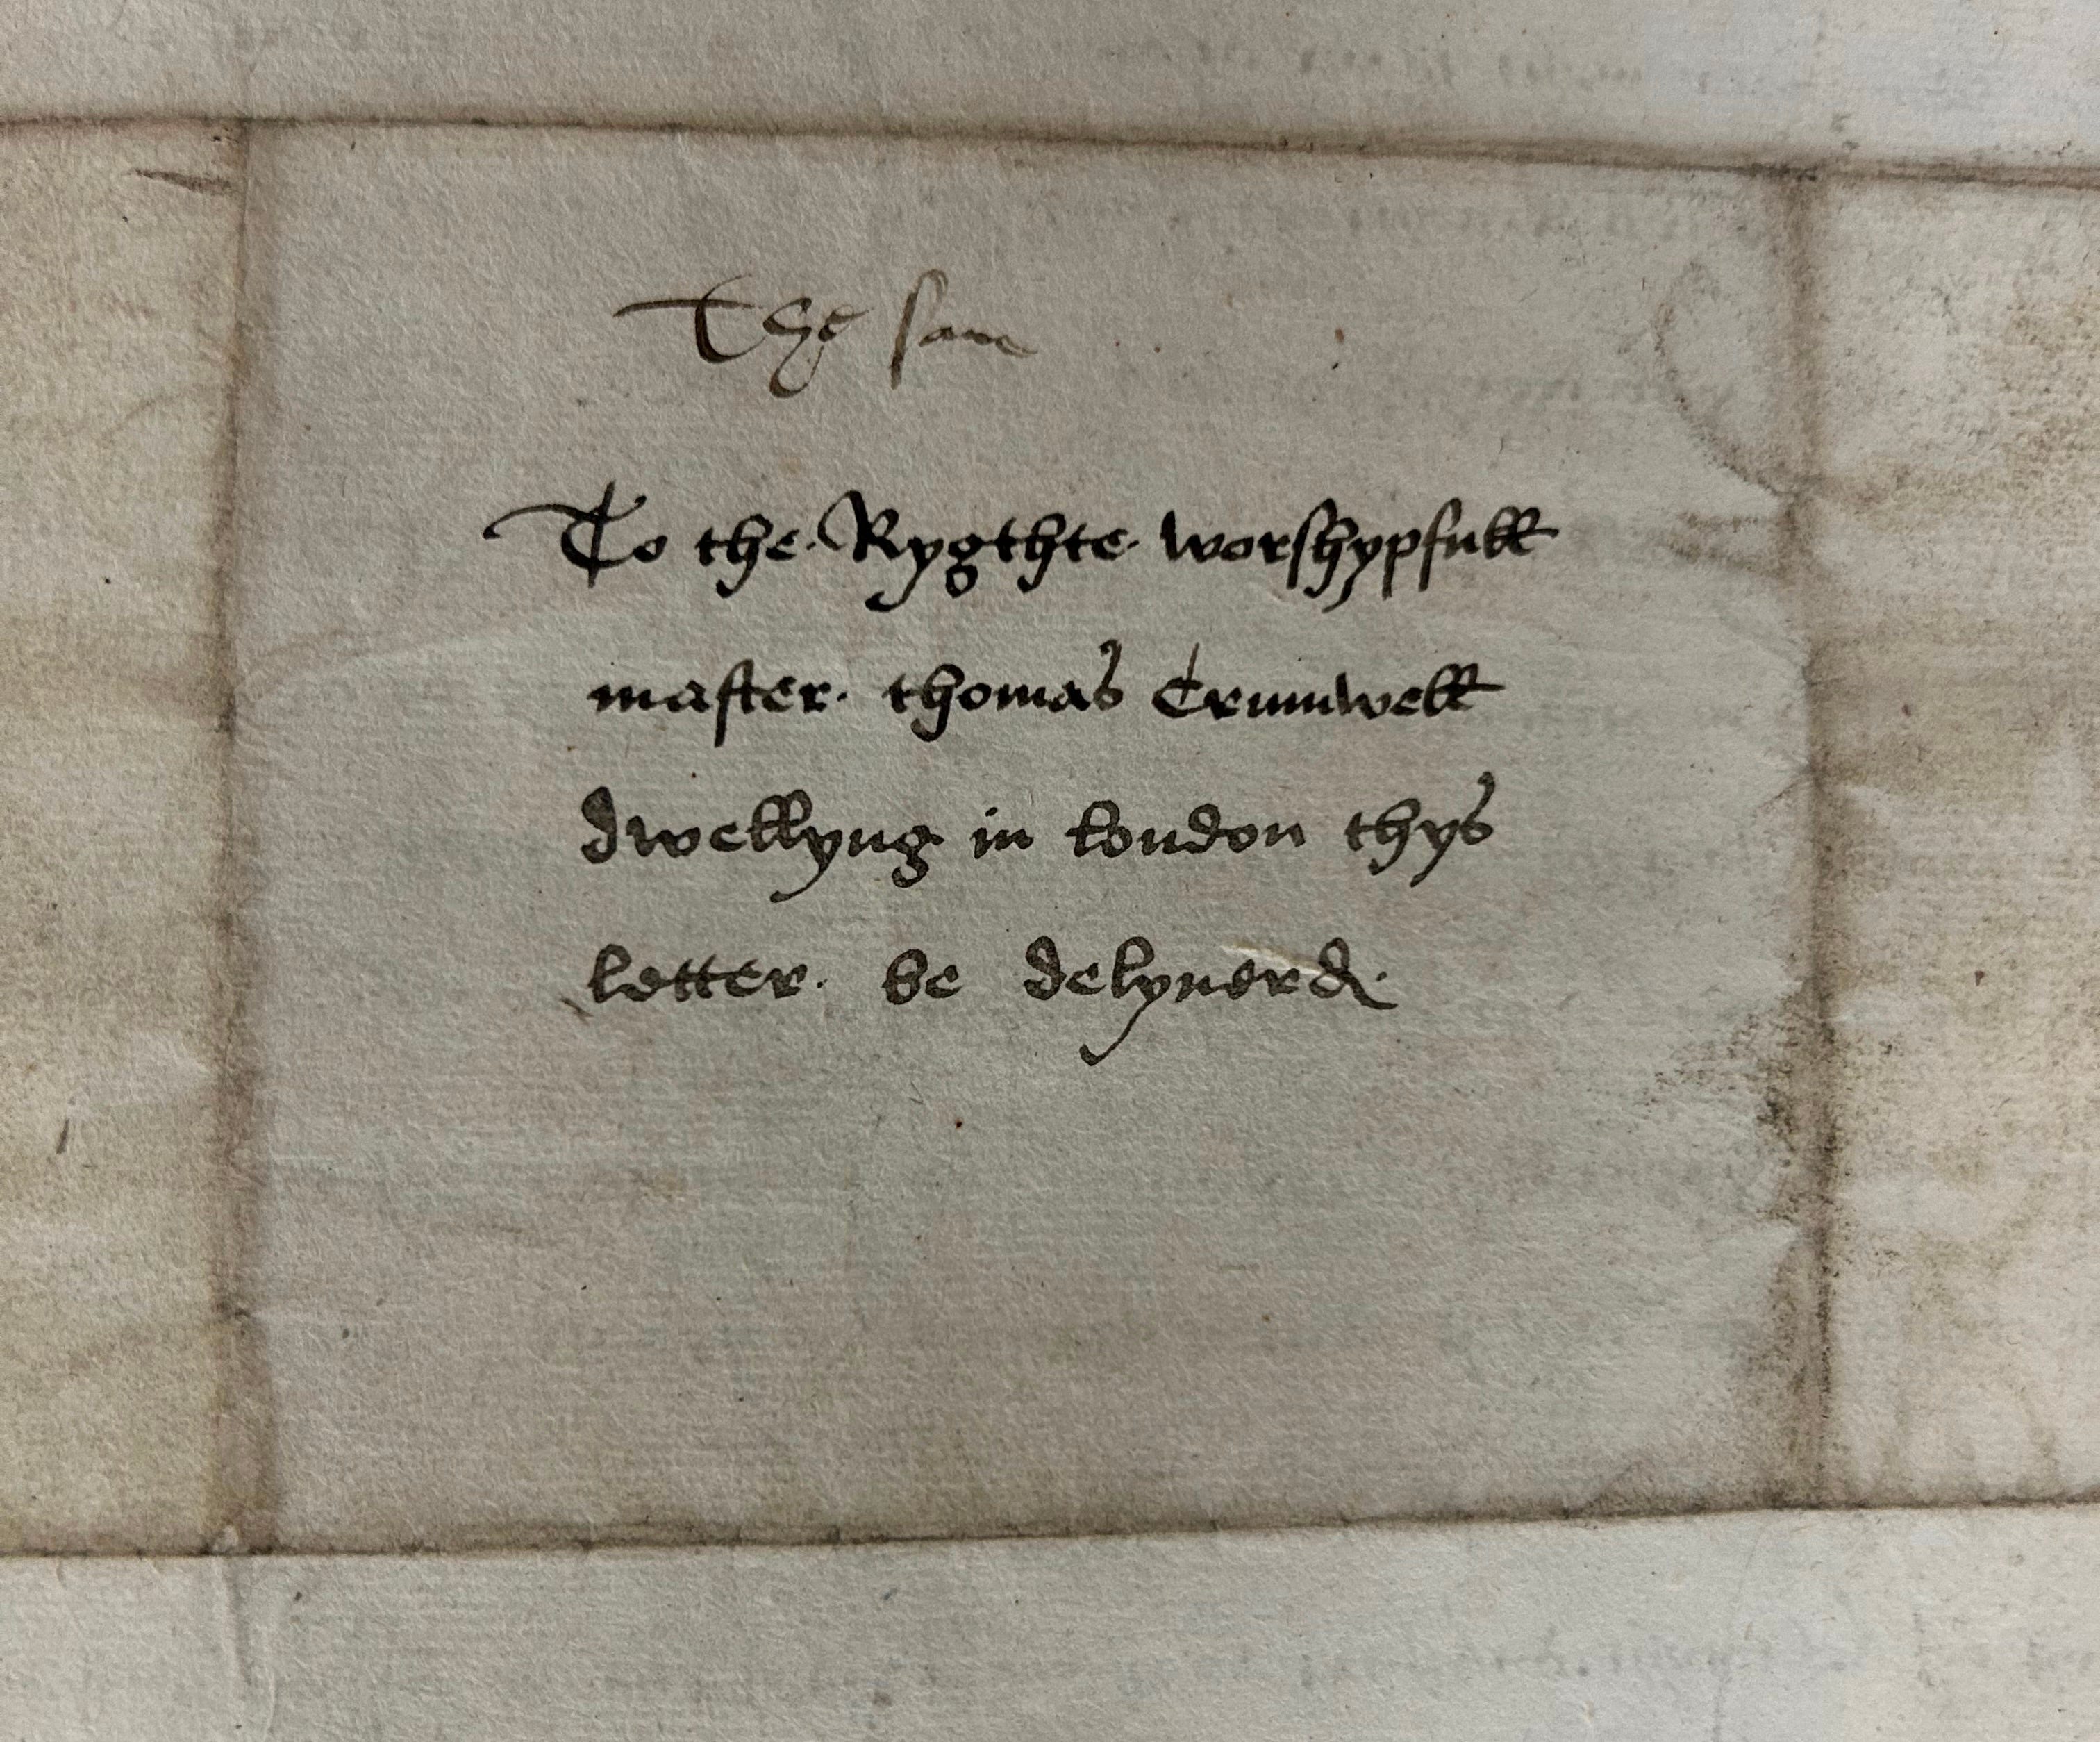 The same
To the Rygthte worshypfull
master thomas Crumwell
dwellyng in london thys
letter be delyuerd